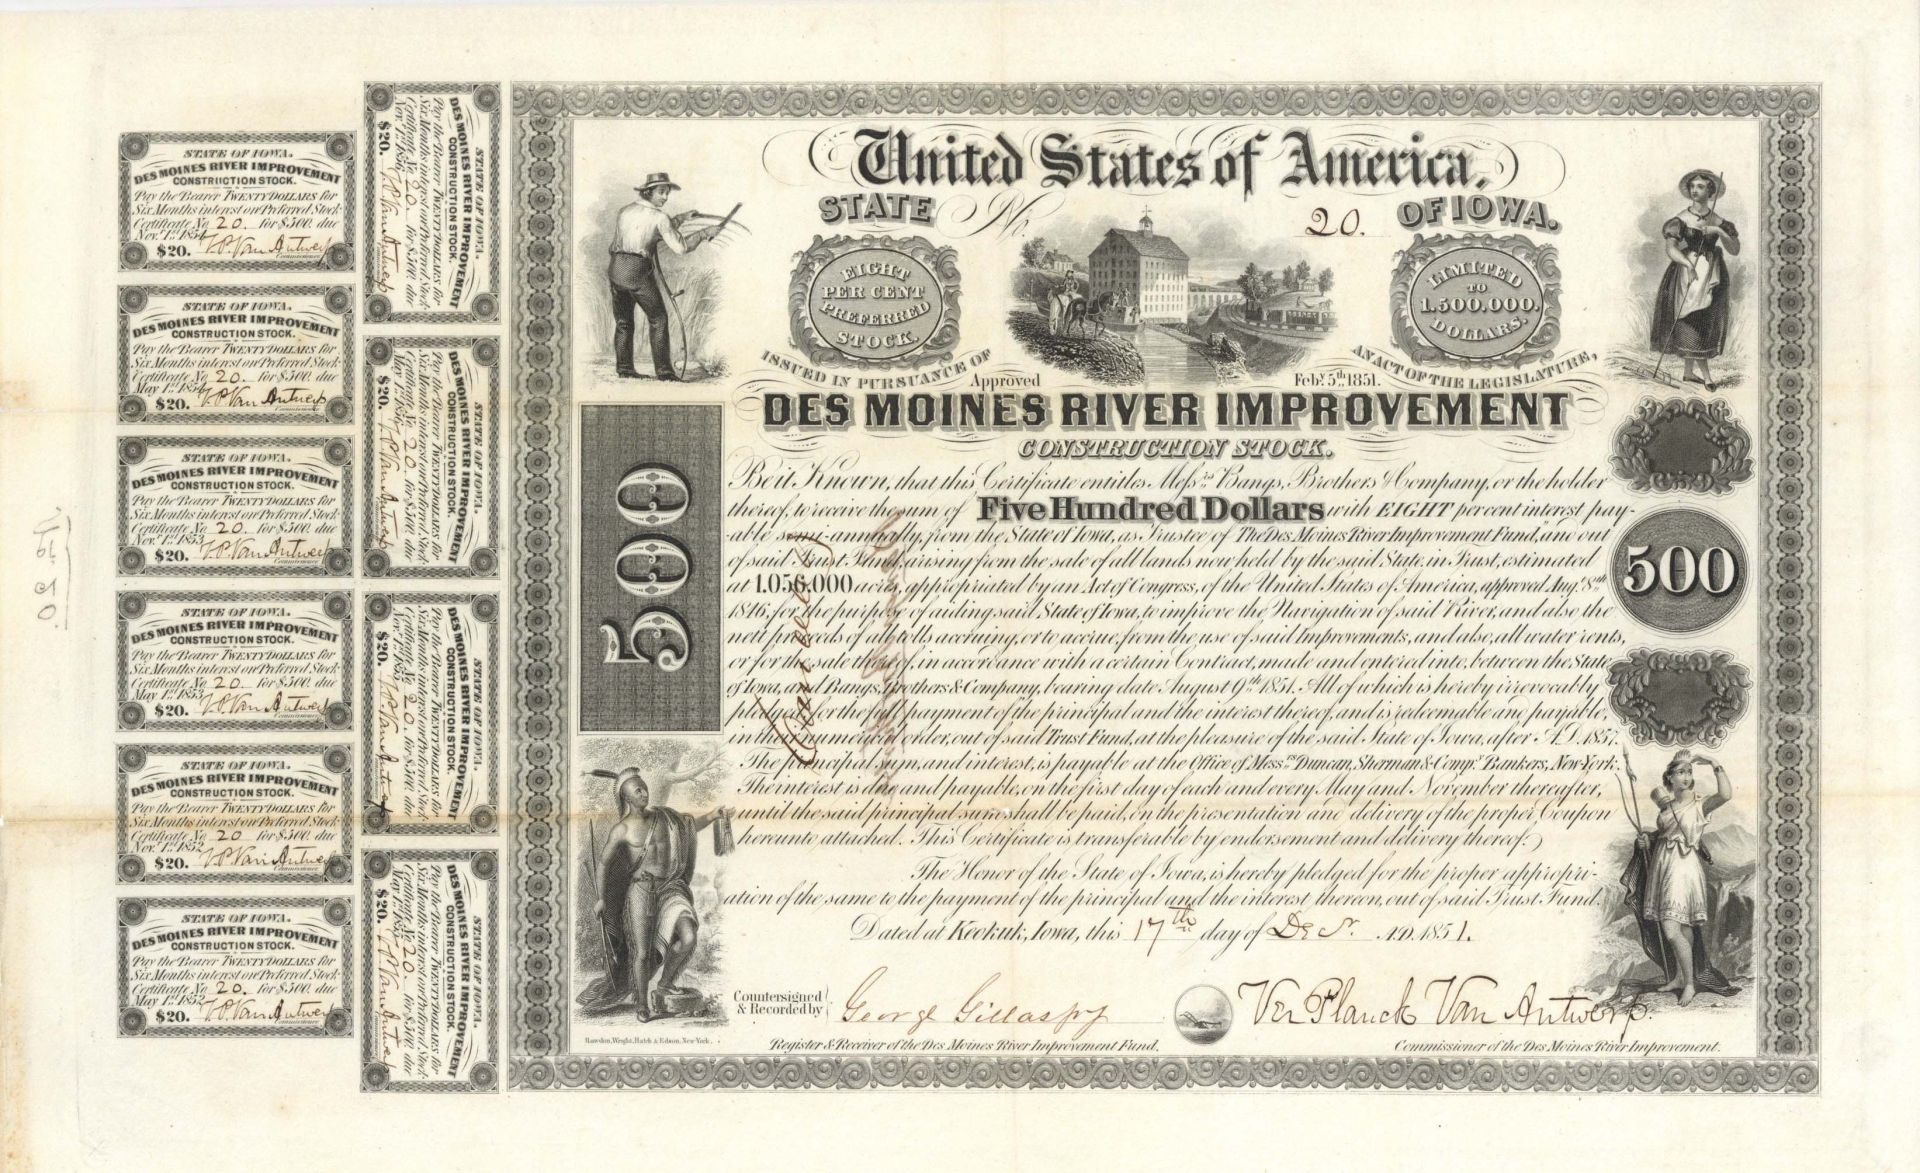 STATE OF IOWA.
DES MOINES RIVER IMPROVEMENT
CONSTRUCTION STOCK.
Pay the Bearer TWENTY DOLLARS for
Six Months interest on Preferred Stock
Certificate No. 20. for $500. due
Nov. 1st 1854
$20. V. P. Van Antwerp
Commissioner
STATE OF IOWA.
DES MOINES RIVER IMPROVEMENT
CONSTRUCTION STOCK.
Pay the Bearer TWENTY DOLLARS for
Six Months interest on Preferred Stock
Certificate No. 20. for $500. due
May 1st 1854
$20. V. P. Van Antwerp
Commissioner
STATE OF IOWA.
DES MOINES RIVER IMPROVEMENT
CONSTRUCTION STOCK.
Pay the Bearer TWENTY DOLLARS for
Six Months interest on Preferred Stock
Certificate No. 20. for $500. due
Nov. 1st 1853
$20. V. P. Van Antwerp
Commissioner
STATE OF IOWA.
DES MOINES RIVER IMPROVEMENT
CONSTRUCTION STOCK.
Pay the Bearer TWENTY DOLLARS for
Six Months interest on Preferred Stock
Certificate No. 20. for $500. due
May 1st 1853
$20. V. P. Van Antwerp
Commissioner
STATE OF IOWA.
DES MOINES RIVER IMPROVEMENT
CONSTRUCTION STOCK.
Pay the Bearer TWENTY DOLLARS for
Six Months interest on Preferred Stock
Certificate No. 20 for $500. due
Nov. 1st 1852
$20. V. P. Van Antwerp
Commissioner
STATE OF IOWA.
DES MOINES RIVER IMPROVEMENT
CONSTRUCTION STOCK.
Pay the Bearer TWENTY DOLLARS for
Six Months interest on Preferred Stock
Certificate No. 20. for $500. due
May 1st 1852
$20. V. P. Van Antwerp
Commissioner
STATE OF IOWA.
DES MOINES RIVER IMPROVEMENT
CONSTRUCTION STOCK.
Pay the Bearer TWENTY DOLLARS for
Six Months interest on Preferred Stock
Certificate No. 20. for $500. due
Nov. 1st 1856
$20. V. P. Van Antwerp
STATE OF IOWA.
DES MOINES RIVER IMPROVEMENT
CONSTRUCTION STOCK.
Pay the Bearer TWENTY DOLLARS for
Six Months interest on Preferred Stock
Certificate No. 20. for $500. due
May 1st 1856
$20. V. P. Van Antwerp
STATE OF IOWA.
DES MOINES RIVER IMPROVEMENT
CONSTRUCTION STOCK.
Pay the Bearer TWENTY DOLLARS for
Six Months interest on Preferred Stock
Certificate No. 20. for $500. due
Nov. 1st 1855
$20. V. P. Van Antwerp
STATE OF IOWA.
DES MOINES RIVER IMPROVEMENT
CONSTRUCTION STOCK.
Pay the Bearer TWENTY DOLLARS for
Six Months interest on Preferred Stock
Certificate No. 20. for $500. due
May 1st 1855
$20. V. P. Van Antwerp
United States of America,
STATE No. 20. OF IOWA.
EIGHT
PER CENT
PREFERRED
STOCK.
LIMITED
TO
1.500.000.
DOLLARS.
ISSUED IN PURSUANCE OF AN ACT OF THE LEGISLATURE,
Approved Feby. 5th 1851.
DES MOINES RIVER IMPROVEMENT
CONSTRUCTION STOCK.
500
Be it Known, that this Certificate entitles Messrs Bangs, Brothers & Company, or the holder
thereof, to receive the sum of Five Hundred Dollars with EIGHT per cent interest pay-
-able semi-annually, from the State of Iowa, as Trustee of "The Des Moines River Improvement Fund," and out
of said Trust Fund, arising from the sale of all lands now held by the said State, in Trust, estimated
at 1.056.000 acres, appropriated by an Act of Congress, of the United States of America, approved Augt. 8th
1846, for the purpose of aiding said State of Iowa, to improve the Navigation of said River, and also the
nett proceeds of all tolls accruing, or to accrue, from the use of said Improvements, and also, all water rents,
or for the sale thereof, in accordance with a certain Contract, made and entered into, between the State
of Iowa, and Bangs, Brothers & Company, bearing date August 9th 1851. All of which is hereby irrevocably
pledged for the full payment of the principal and the interest thereof, and is redeemable and payable,
in their numerical order, out of said Trust Fund, at the pleasure of the said State of Iowa, after A.D. 1857.
The principal sum, and interest, is payable at the Office of Messrs Duncan, Sherman & Compy. Bankers, New-York.
The interest is due and payable, on the first day of each and every May and November thereafter,
until the said principal sum shall be paid, on the presentation and delivery of the proper Coupon
hereunto attached. This Certificate is transferable by endorsement and delivery thereof.
The Honor of the State of Iowa, is hereby pledged for the proper appropri-
ation of the same to the payment of the principal and the interest thereon, out of said Trust Fund.
500
Cancelled
Dated at Keokuk, Iowa, this 17th day of Decr. A.D. 1851.
Countersigned
& Recorded by George Gillaspy
Ver Planck Van Antwerp.
Register & Receiver of the Des Moines River Improvement Fund.
Commissioner of the Des Moines River Improvement.
Rawdon, Wright, Hatch & Edson, New-York.